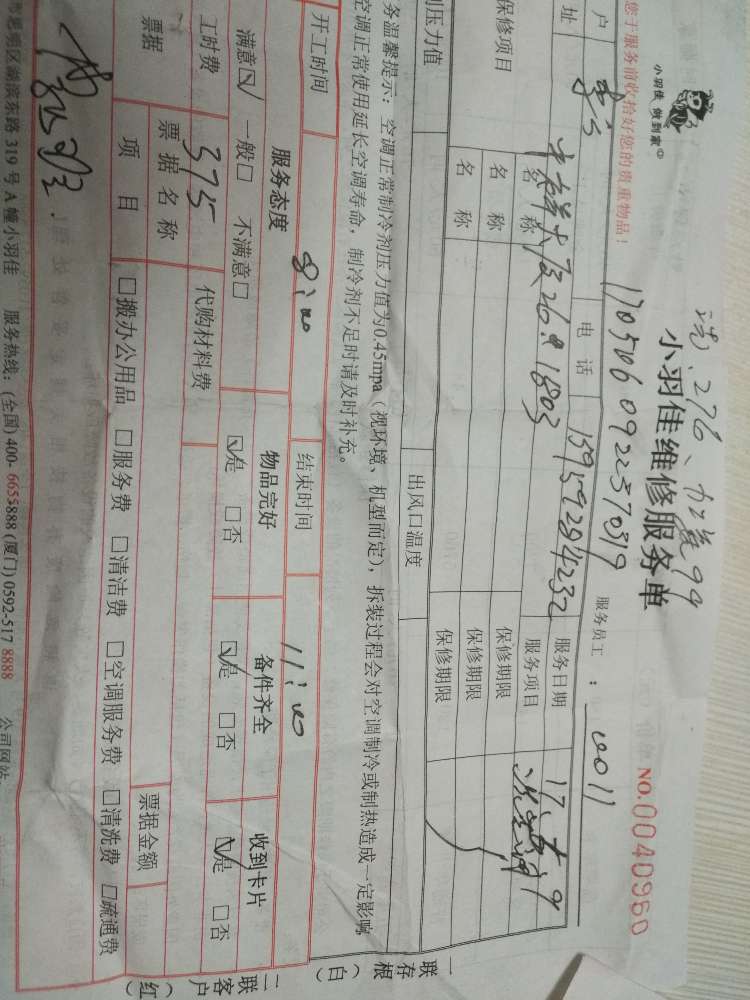 小羽佳 做到家
洗:276、加氨99
小羽佳维修服务单
NO.0040960
1705060922570819
服务员工：0011
您于服务前收拾好您的贵重物品！
户
电话
15959284232
服务日期
17.5.9
址
1803
服务项目
洗空调
保修项目
名称
保修期限
名称
保修期限
名称
保修期限
压力值
出风口温度
务温馨提示：空调正常制冷剂压力值为0.45mpa（视环境、机型而定），拆装过程会对空调制冷或制热造成一定影响
空调正常使用延长空调寿命，制冷剂不足时请及时补充。
开工时间
8:00
结束时间
11:00
服务态度
物品完好
备件齐全
收到卡片
满意☑ 一般□ 不满意□
☑是 □否
☑是 □否
☑是 □否
工时费
375
代购材料费
票据
票据名称
票据金额
项目
□搬办公用品 □服务费 □清洁费 □空调服务费 □清洗费 □疏通费
市思明区湖滨东路319号A幢小羽佳 服务热线：(全国)400-6655888 (厦门)0592-5178888 公司网站
一联存根（白）
二联客户（红）